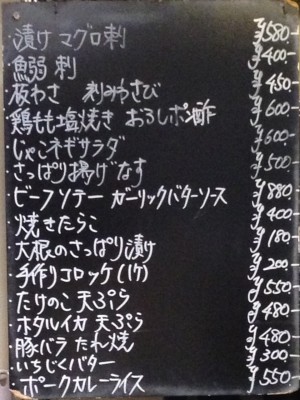 ・漬け マグロ刺 ¥580-
・魚弱 刺 ¥400-
・板わさ 刻みわさび ¥450-
・鶏もも塩焼き おろしポン酢 ¥600-
・じゃこネギサラダ ¥600-
・さっぱり揚げなす ¥500-
・ビーフソテー ガーリックバターソース ¥880-
・焼きたらこ ¥400-
・大根のさっぱり漬け ¥180-
・手作りコロッケ(1ケ) ¥200-
・たけのこ 天ぷら ¥550-
・ホタルイカ 天ぷら ¥480-
・豚バラ たれ焼 ¥480-
・いちじくバター ¥300-
・ポークカレーライス ¥550-